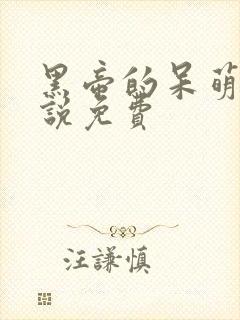 黑帝的呆萌
說免費
汪謙慎